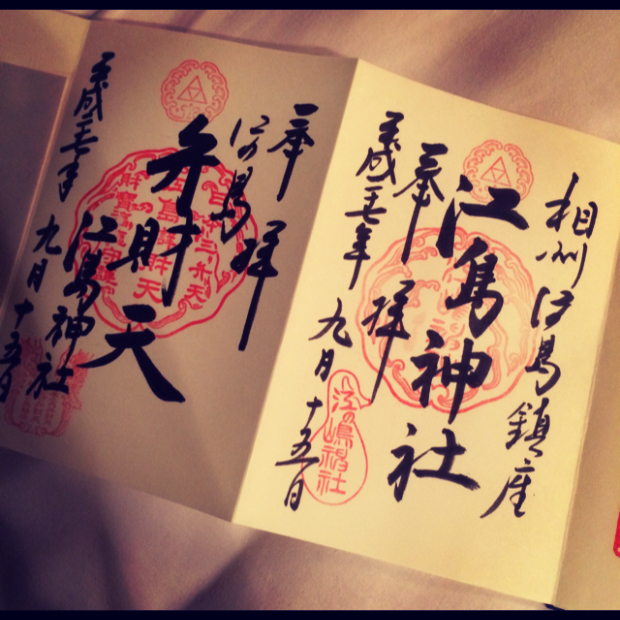 相州江島鎮座
江島神社
奉拝
平成二十七年九月十五日
江の嶋
社
奉拝
江島
弁財天
江島神社
平成二十七年九月十五日